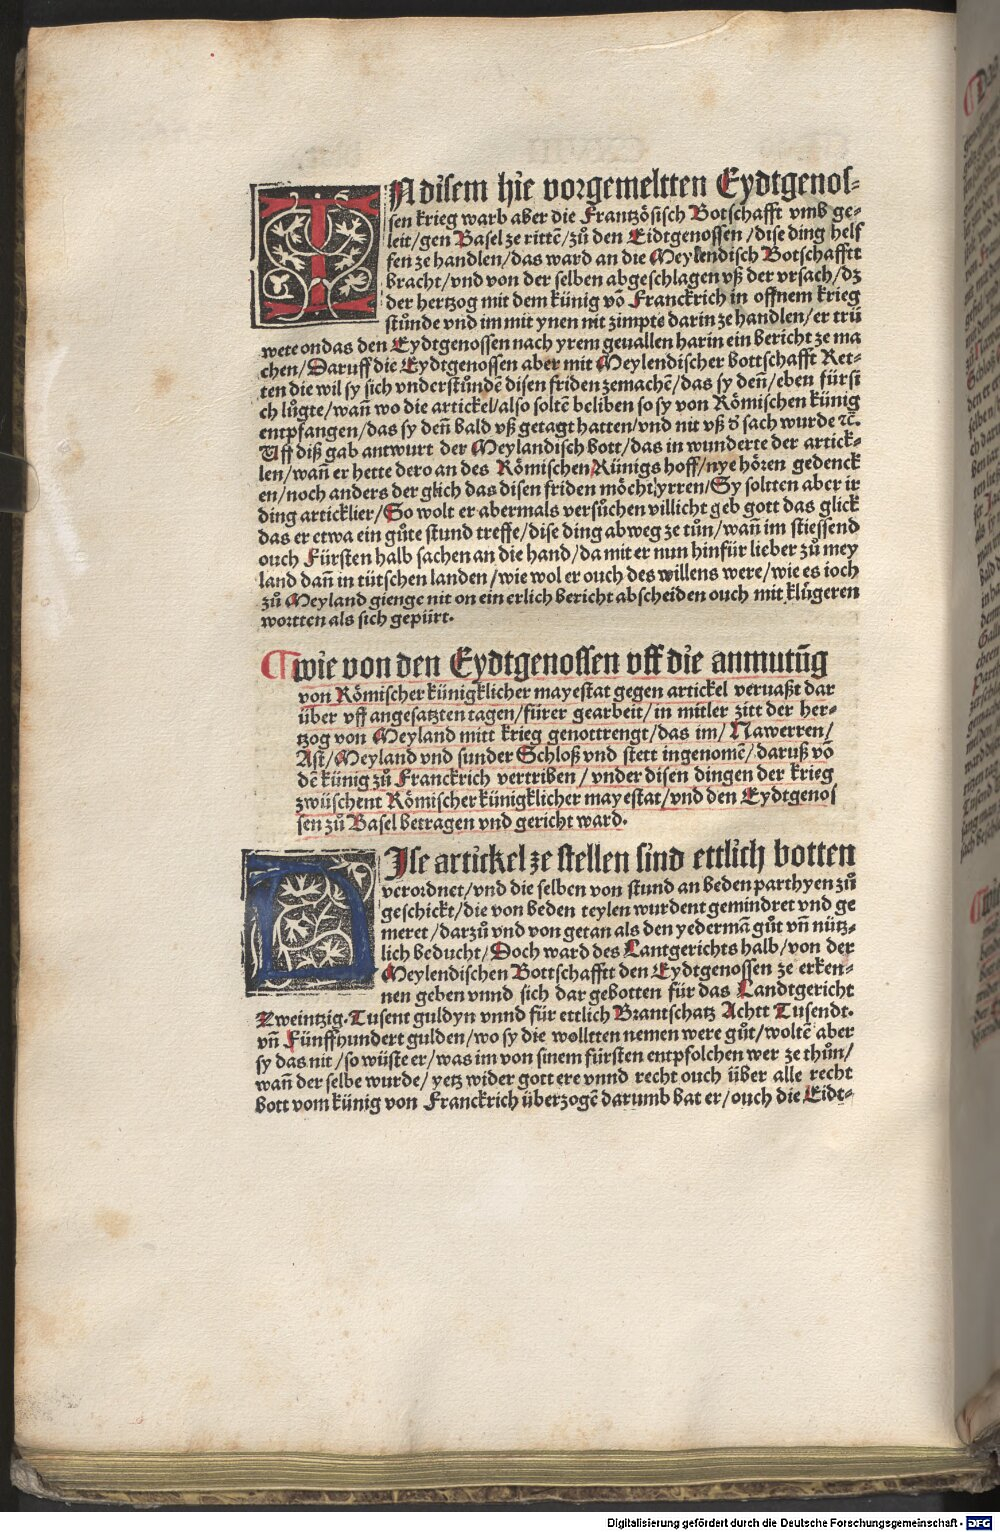 IN disem hie vorgemeltten Eydtgenos⸗
sen krieg warb aber die Frantzösisch Botschafft vmb ge⸗
leit/gen Basel ze rittē/zů den Eidtgenossen/dise ding helf
fen ze handlen/das ward an die Meylendisch Botschafftt
bracht/vnd von der selben abgeschlagen vß der vrsach/dz
der hertzog mit dem künig vō Franckrich in offnem krieg
stůnde vnd im mit ynen nit zimpte darin ze handlen/er trü
wete on das den Eydtgenossen nach yrem geuallen harin ein bericht ze ma
chen/Daruff die Eydtgenossen aber mit Meylendischer bottschafft Ret⸗
ten die wil sy sich vnderstůndē disen friden zemachē/das sy deñ/eben fürsi
ch lůgte/wañ wo die artickel/also soltē beliben so sy von Römischen künig
entpfangen/das sy deñ bald vß getagt hatten/vnd nit vß d̕ sach wurde ⁊c̄.
Uff diß gab antwurt der Meylandisch bott/das in wunderte der artick⸗
len/wañ er hette dero an des Römischen Künigs hoff/nye hören gedenck
en/noch anders der glich das disen friden möcht yrren/Sy soltten aber ir
ding articklier/So wolt er abermals versůchen villicht geb gott das glick
das er etwa ein gůte stund treffe/dise ding abweg ze tůn/wañ im stiessend
ouch Fürsten halb sachen an die hand/da mit er nun hinfür lieber zů mey
land dañ in tütschen landen/wie wol er ouch des willens were/wie es ioch
zů Meyland gienge nit on ein erlich bericht abscheiden ouch mit klůgeren
wortten als sich gepürt.
¶ wie von den Eydtgenossen vff die anmutūg
von Römischer künigklicher mayestat gegen artickel veruaßt dar
über vff angesatzten tagen/fürer gearbeit/in mitler zitt der her⸗
tzog von Meyland mitt krieg genottrengt/das im/Nawerren/
Ast/Meyland vnd sunder Schloß vnd stett ingenomē/daruß vō
dē künig zů Franckrich vertriben/vnder disen dingen der krieg
zwüschent Römischer künigklicher mayestat/vnd den Eydtgenos
sen zů Basel betragen vnd gericht ward.
DIse artickel ze stellen sind ettlich botten
verordnet/vnd die selben von stund an beden parthyen zů
geschickt/die von beden teylen wurdent gemindret vnd ge
meret/darzů vnd von getan als den yederman gůt vñ nütz⸗
lich beducht/Doch ward des Lantgerichts halb/von der
Meylendischen Bottschafftt den Eydtgenossen ze erken⸗
nen geben vnnd sich dar gebotten für das Landtgericht
Zweintzig. Tusent guldyn vnnd für ettlich Brantschatz Achtt Tusendt.
vñ Fünffhundert gulden/wo sy die wolltten nemen were gůt/woltē aber
sy das nit/so wüste er/was im von sinem fürsten entpfolchen wer ze thůn/
wañ der selbe wurde/yetz wider gott ere vnnd recht ouch über alle recht
bott vom künig von Franckrich überzogē darumb bat er/ouch die Eidt⸗
Digitalisierung gefördert durch die Deutsche Forschungsgemeinschaft - DFG